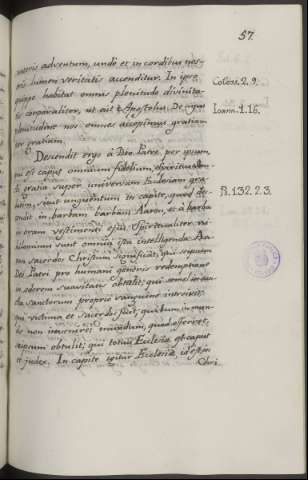 57
nostris adventum, unde et in cordibus nos-
tris lumen veritatis accenditur. In ipso
quippe habitat omnis plenitudo divinita-
tis corporaliter, ut ait Apostolus. De cujus
plenitudine nos omnes accepimus gratiam
pro gratiam.
Coloss. 2. 9.
Joann. 1. 16.
Descendit ergo a Deo Patre, per quem
est caput omnium fidelium,
gratia super universum Ecclesiam
sicut unguentum in capite, quod des-
cendit in barbam barbam Aaron, et a barba
in oram vestimenti ejus. Spiritualiter
sunt omnia ista intelligenda. Aa-
ron sacerdos Christum significat, qui
Deo Patri pro humani generis redemptione
odorem suavitatis obtulit; qui semel in
sancta sanctorum proprio sanguine introivit;
qui victima et sacerdos fuit; qui cum in mun-
do non invenisset mundum, quod offerret,
seipsum obtulit; qui totius Ecclesiæ est caput
et judex. In capite igitur Ecclesiæ, id est in
Chri
Ps. 132. 2. 3.